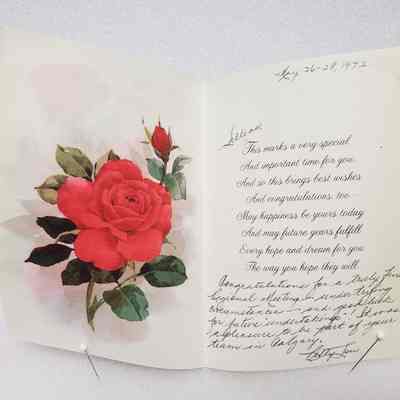 May 26-28, 1972
This marks a very special
And important time for you
And so this brings best wishes
And congratulations, too
May happiness be yours today
And may future years fulfill
Every hope and dream for you
The way you hope they will
Congratulations for a truly fine
Regional Meeting - under trying
circumstances - and good luck
for future undertakings! It was
a pleasure to be part of your
team in Calgary.